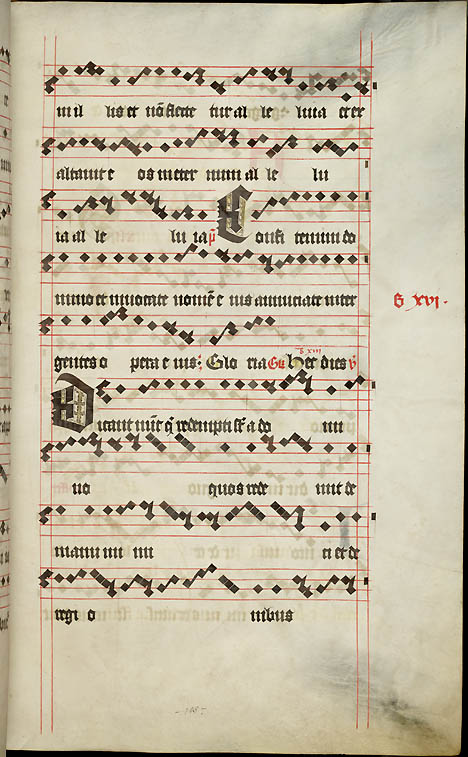 mil lis et nō flecte tur al le luia et ex
altavit e os mater num al le lu
ia al le lu ia p̄ Confi temini do
mino et invocate nomē e ius annuntiate inter
gentes o pera e ius: Glo ria Gr̄ Hec dies v̄
ꝟ xvi
Dicant nūc q̄ redempti sūt a do mi
no quos rede mit de
manu ini mi ci et de
regi o nibus